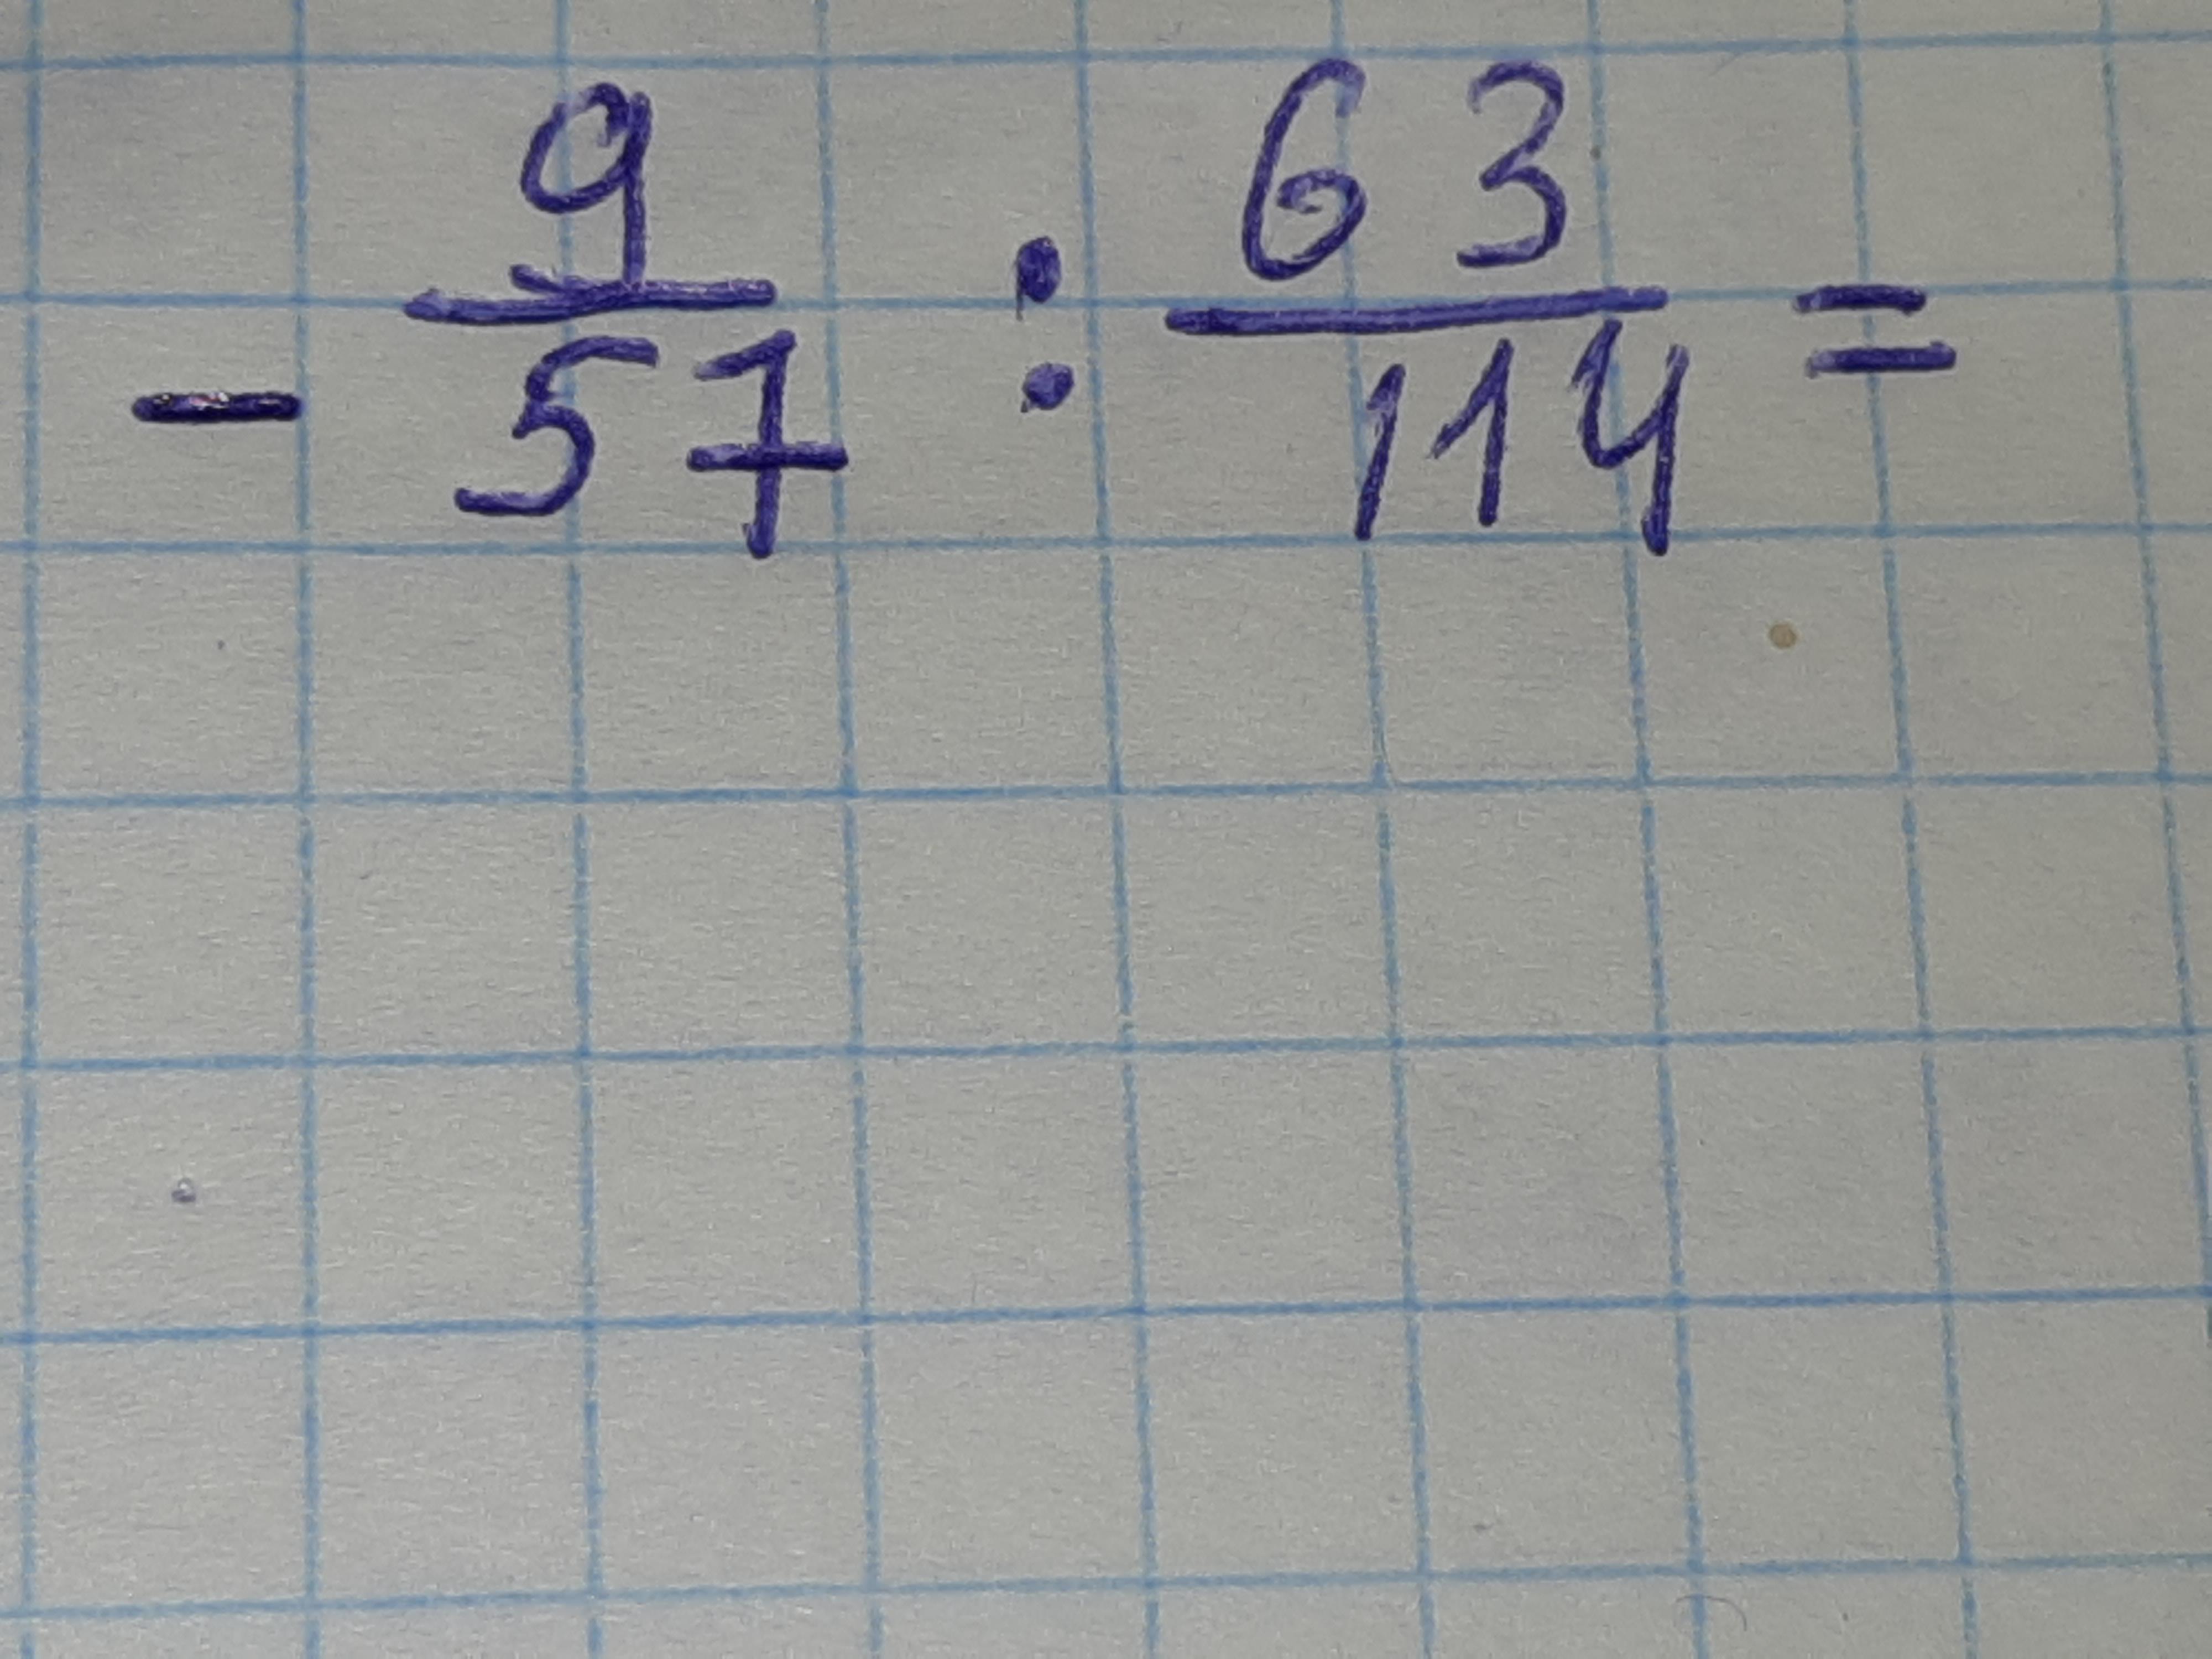 - 9/57 : 63/114 =